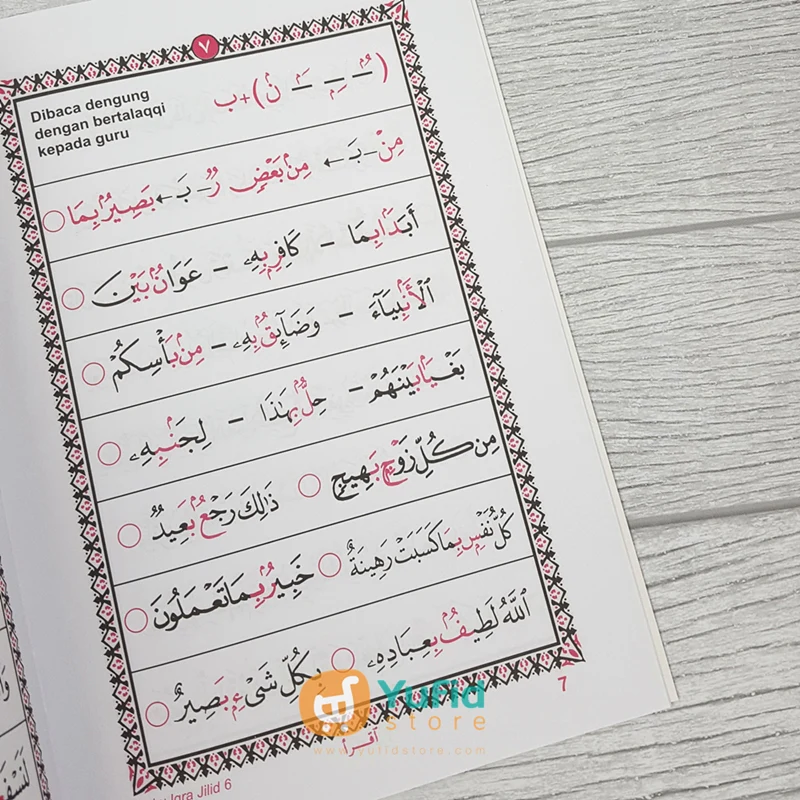 ٧
Dibaca dengung
dengan bertalaqqi
kepada guru
( ـُۢ ـِۢ ـَۢ نۢ ) + ب
مِنْ - بَ ← مِنۢ بَعْضٍ رٌ - بَ ← بَصِيرٌۢ بِمَا
أَبَدَۢا بِمَا - كَافِرٍۭ بِهِۦ - عَوَانٌۢ بَيْنَ
ٱلْأَنۢبِيَآءَ - وَضَآئِقٌۢ بِهِۦ - مِنۢ بَأْسِكُمْ
بَغْيَۢا بَيْنَهُمْ - حِلٌّۢ بِهَٰذَا - لِجَنۢبِهِۦ
مِن كُلِّ زَوْجٍۭ بَهِيجٍ ذَٰلِكَ رَجْعٌۢ بَعِيدٌ
كُلُّ نَفْسٍۭ بِمَا كَسَبَتْ رَهِينَةٌ خَبِيرٌۢ بِمَا تَعْمَلُونَ
ٱللَّهُ لَطِيفٌۢ بِعِبَادِهِۦ بِكُلِّ شَىْءٍۭ بَصِيرٌ
اقرأ
7
Iqra Jilid 6
Yufid
store
www.yufidstore.com